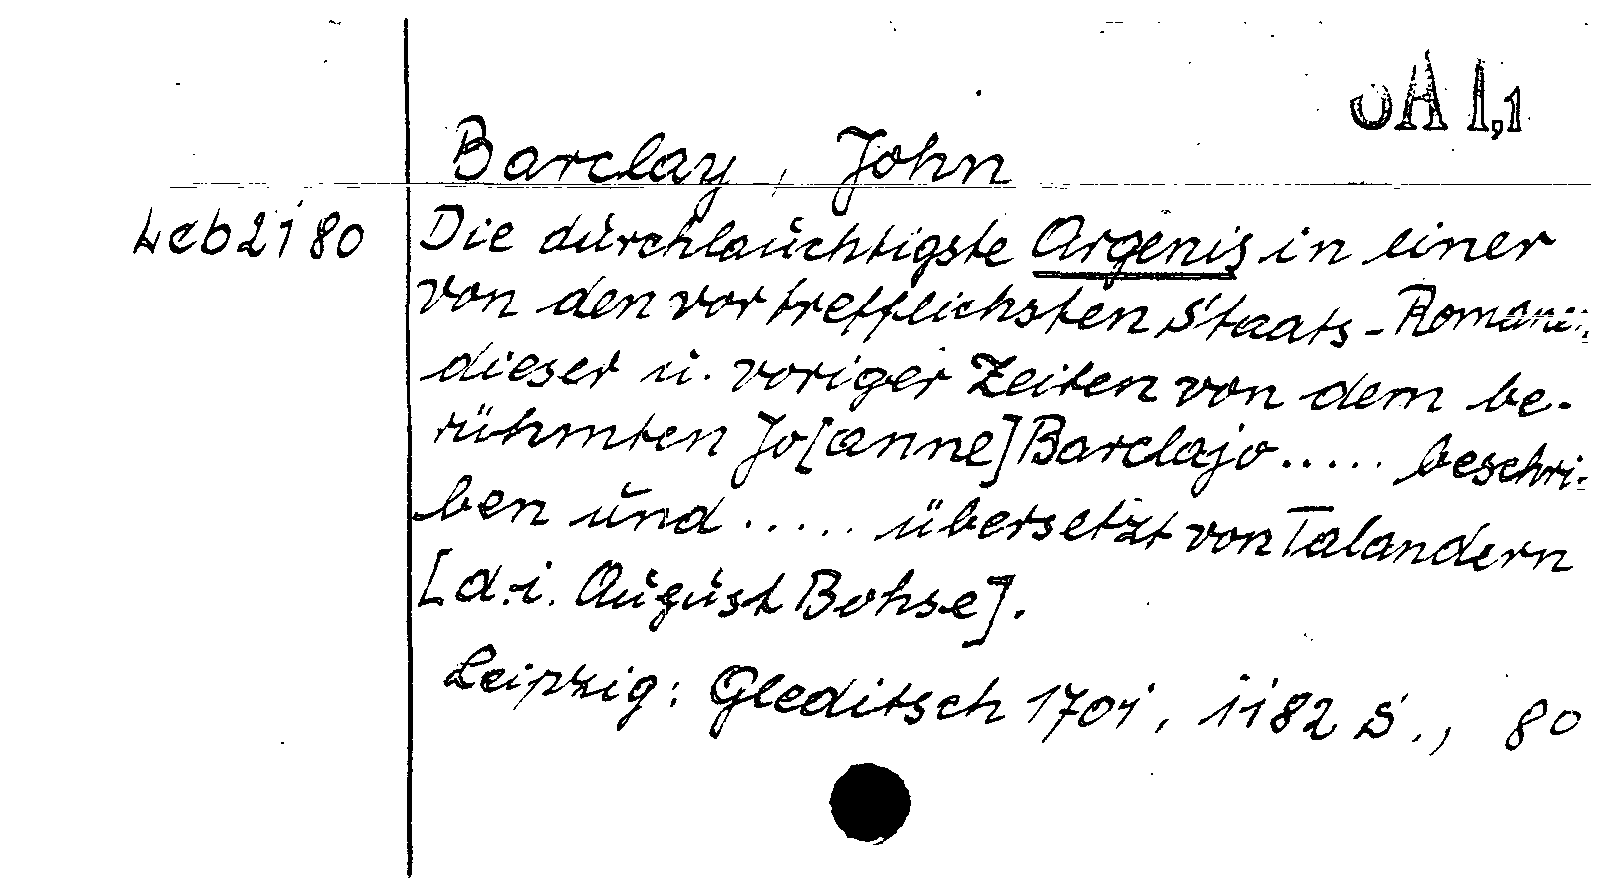 ÖA I,1
Barclay, John
Lcb 2180 Die durchlauchtigste Argenis in einer
von den vortrefflichsten Staats-Romanen
dieser u. voriger Zeiten von dem be-
rühmten Jo[anne] Barclajo ..... beschri-
ben und ..... übersetzt von Talandern
[d.i. August Bohse].
Leipzig: Gleditsch 1701, 1182 S., 80